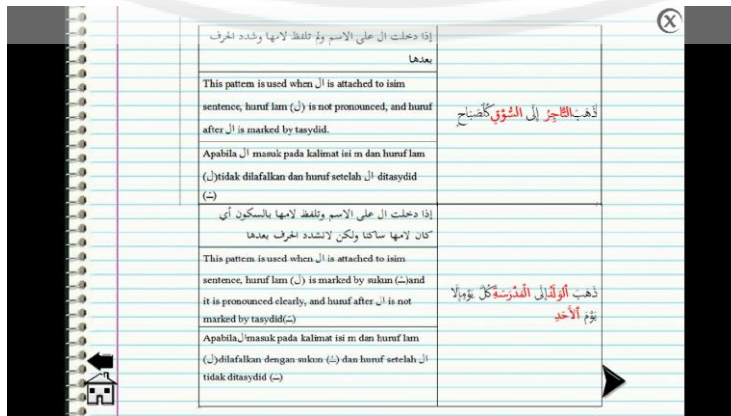 إذا دخلت ال على الاسم ولم تلفظ لامها وشدد الحرف
بعدها
This pattern is used when ال is attached to isim
sentence, huruf lam (ل) is not pronounced, and huruf
after ال is marked by tasydid.
Apabila ال masuk pada kalimat isi m dan huruf lam
(ل)tidak dilafalkan dan huruf setelah ال ditasydid
(ـّ)
ذَهَبَ التَّاجِرُ إِلَى السُّوْقِ كُلَّ صَبَاحٍ
إذا دخلت ال على الاسم وتلفظ لامها بالسكون أي
كان لامها ساكنا ولكن لاتشدد الحرف بعدها
This pattern is used when ال is attached to isim
sentence, huruf lam (ل) is marked by sukun (ـْ)and
it is pronounced clearly, and huruf after ال is not
marked by tasydid(ـّ)
Apabila ال masuk pada kalimat isi m dan huruf lam
(ل)dilafalkan dengan sukun (ـْ) dan huruf setelah ال
tidak ditasydid (ـّ)
ذَهَبَ ٱلْوَلَدُ إِلَى الْمَدْرَسَةِ كُلَّ يَوْمٍ إِلَّا
يَوْمَ ٱلْأَحَدِ